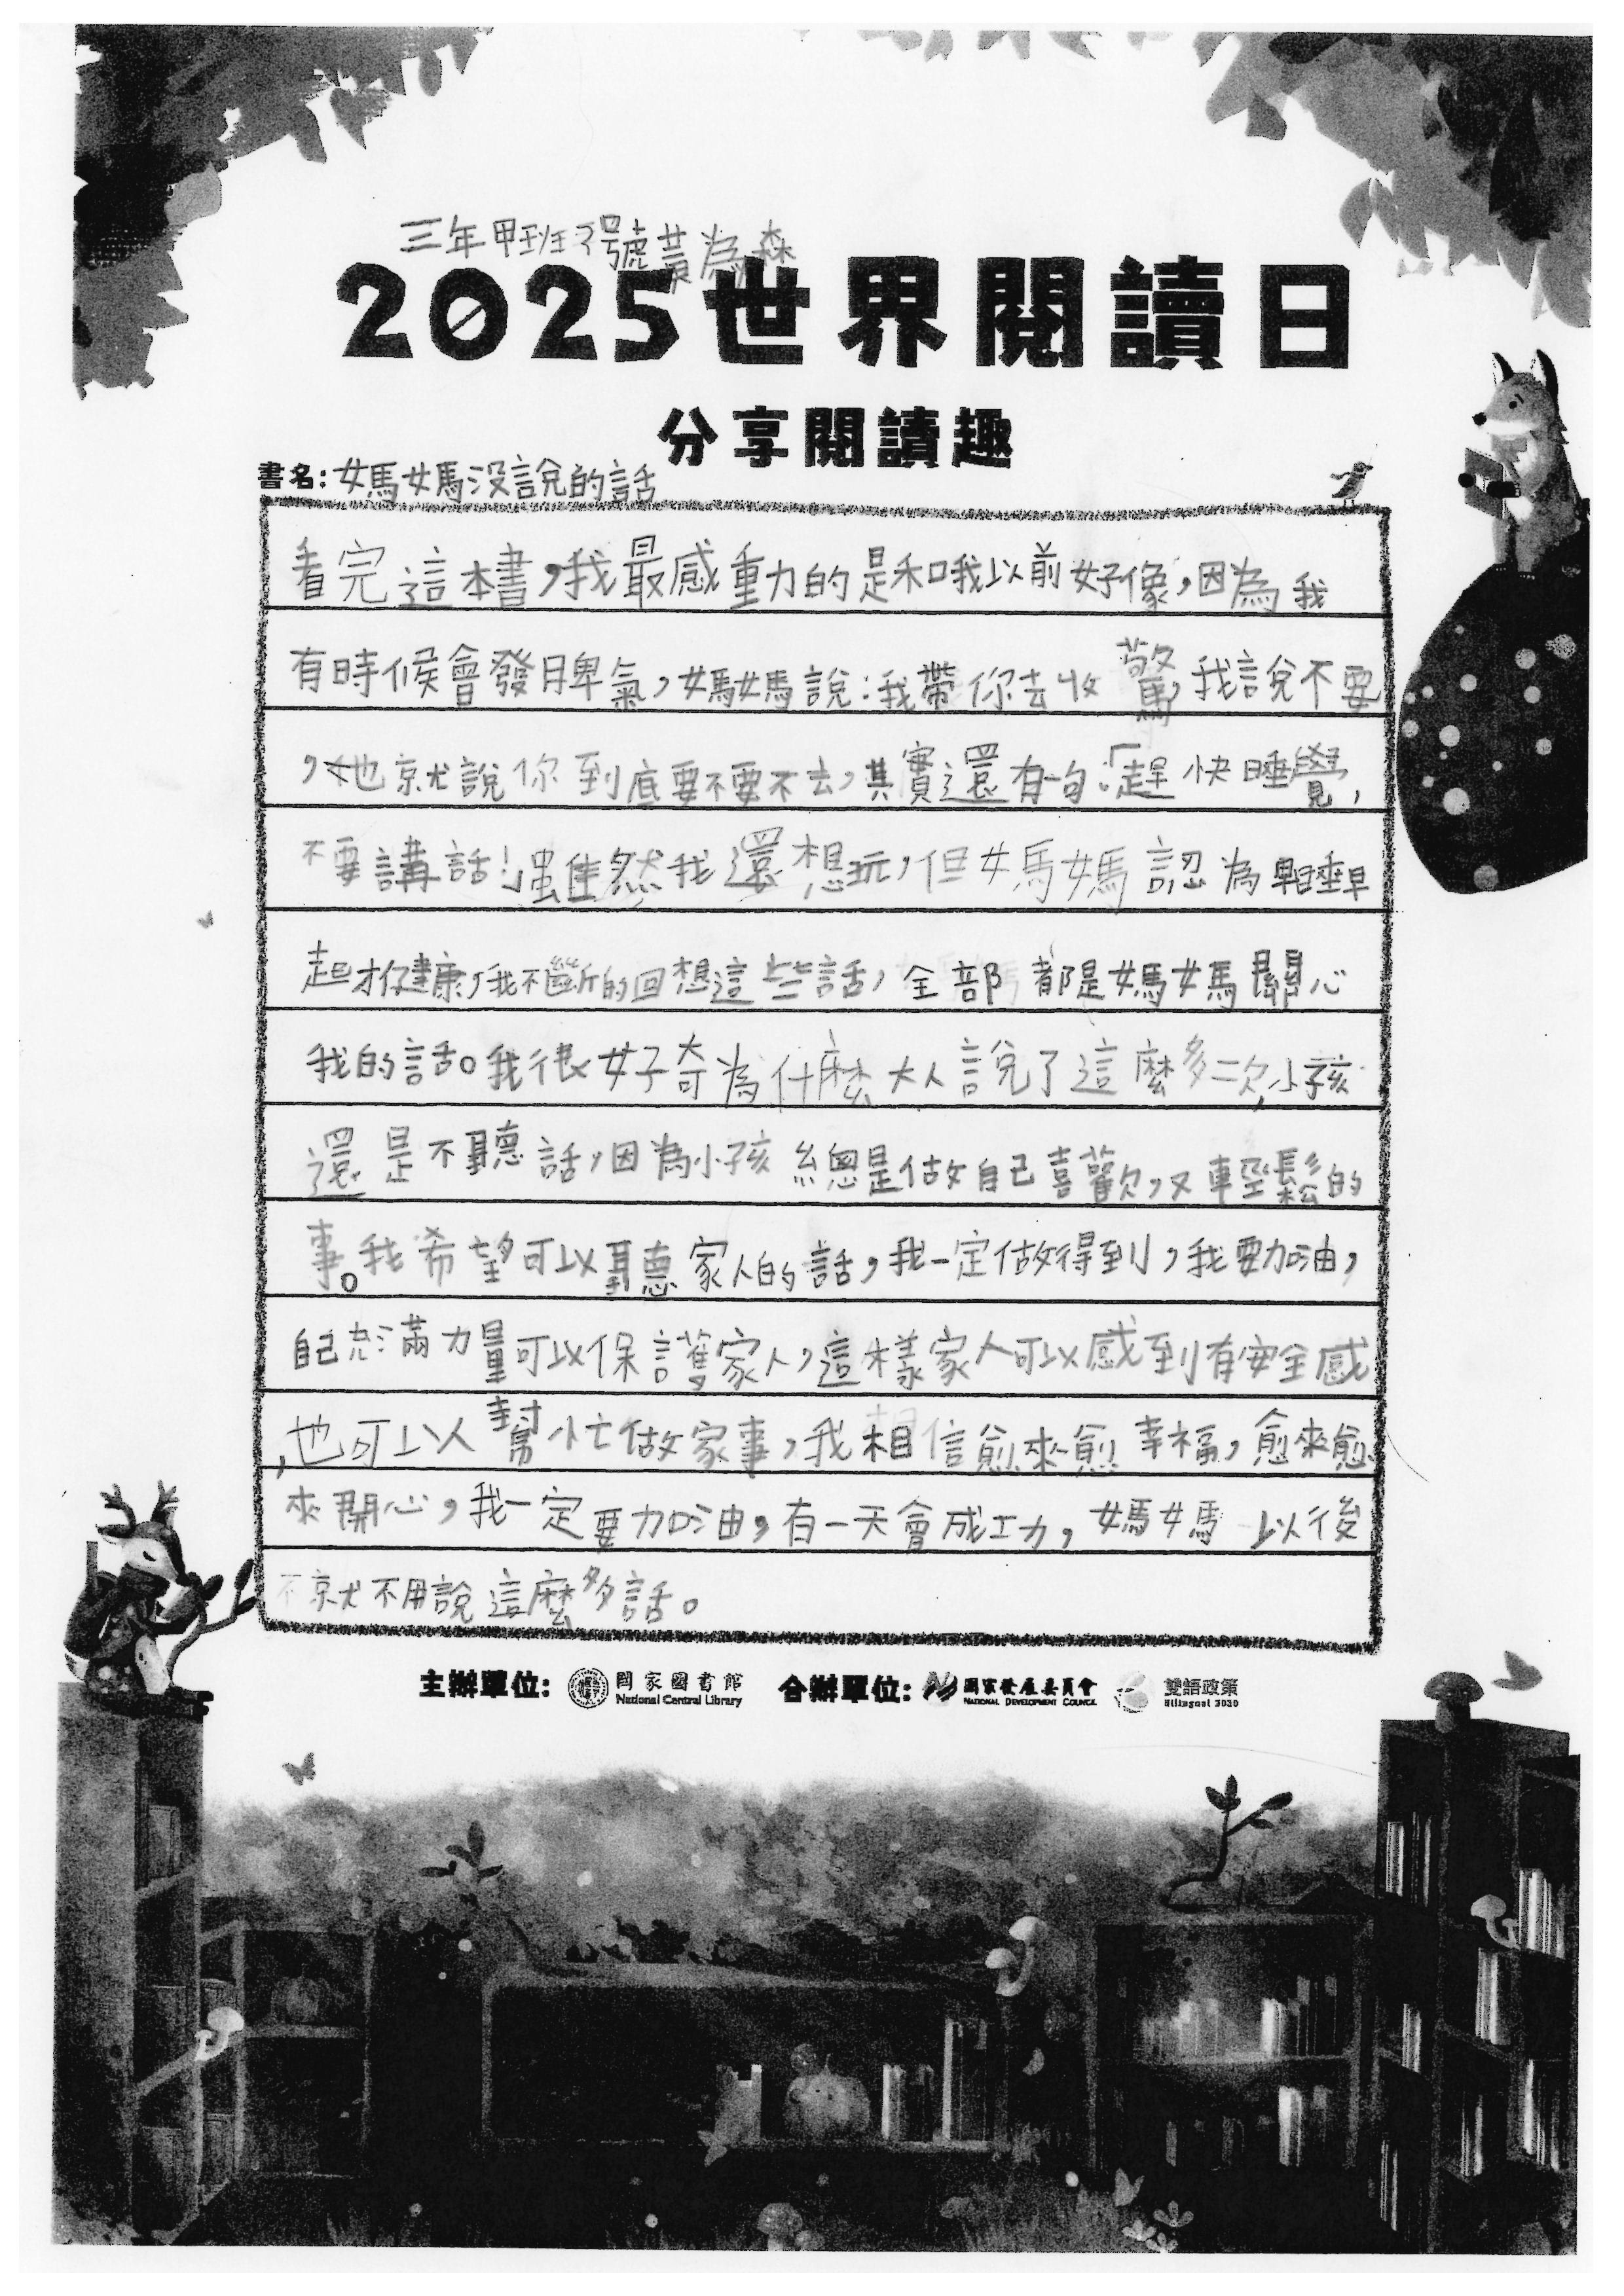 三年甲班3號黃為森
2025世界閱讀日
分享閱讀趣
書名:媽媽沒說的話
看完這本書,我最感動的是和我以前好像,因為我
有時候會發脾氣,媽媽說:我帶你去收驚,我說不要
,他就說你到底要不要不去,其實還有一句:「趕快睡覺,
不要講話!」雖然我還想玩,但媽媽認為早睡早
起才健康,我不斷的回想這些話,全部都是媽媽關心
我的話。我很好奇為什麼大人說了這麼多次,小孩
還是不聽話,因為小孩總是做自己喜歡,又輕鬆的
事。我希望可以聽家人的話,我一定做得到,我要加油,
自己充滿力量可以保護家人,這樣家人可以感到有安全感
,也可以幫忙做家事,我相信愈來愈幸福,愈來愈
來開心,我一定要加油,有一天會成功,媽媽以後
就不用說這麼多話。
主辦單位: 國家圖書館 National Central Library 合辦單位: 國家發展委員會 NATIONAL DEVELOPMENT COUNCIL 雙語政策 Bilingual 2030